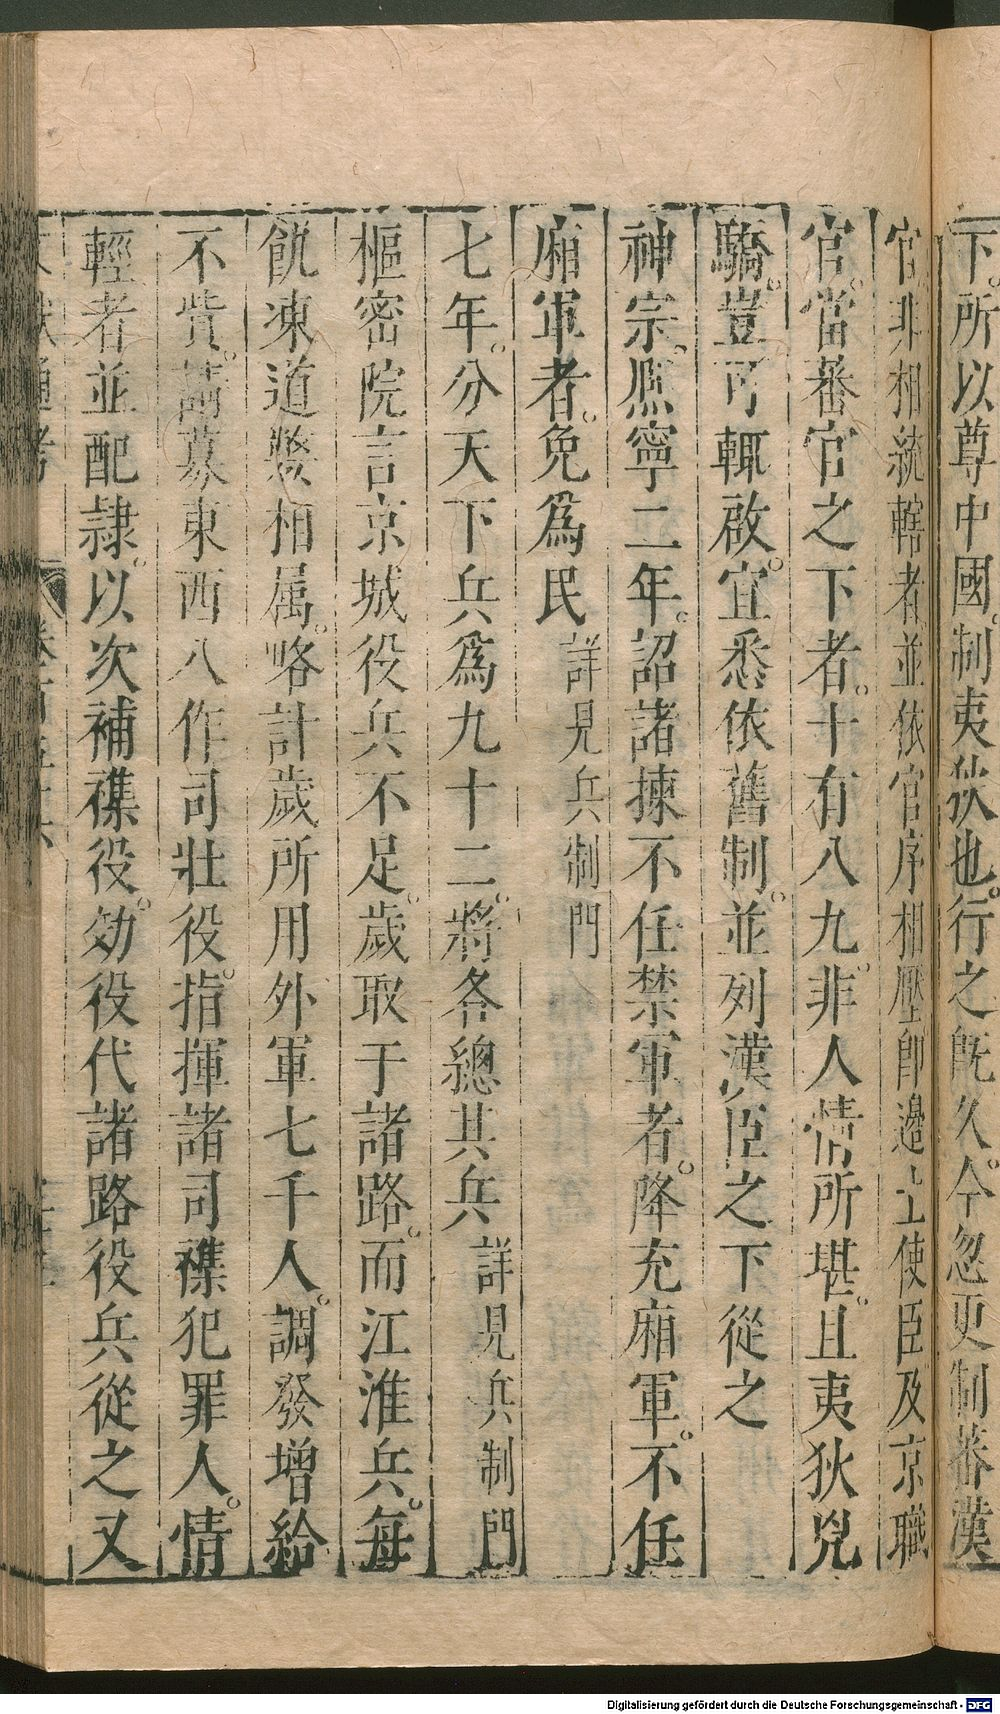 下所以尊中國制夷狄也行之既久今忽更制蕃漢
官非相統轄者並依官序相壓卽邊上使臣及京職
官當蕃官之下者十有八九非人情所堪且夷狄兇
驕豈可輒啟宜悉依舊制並列漢臣之下從之
神宗熙寧二年詔諸揀不任禁軍者降充廂軍不任
廂軍者免爲民詳見兵制門
七年分天下兵爲九十二將各總其兵詳見兵制門
樞密院言京城役兵不足歲取于諸路而江淮兵每
飢凍道斃相属略計歲所用外軍七千人調發增給
不貲請募東西八作司壯役指揮諸司襍犯罪人情
輕者並配隸以次補襍役効役代諸路役兵從之又
Digitalisierung gefördert durch die Deutsche Forschungsgemeinschaft - DFG